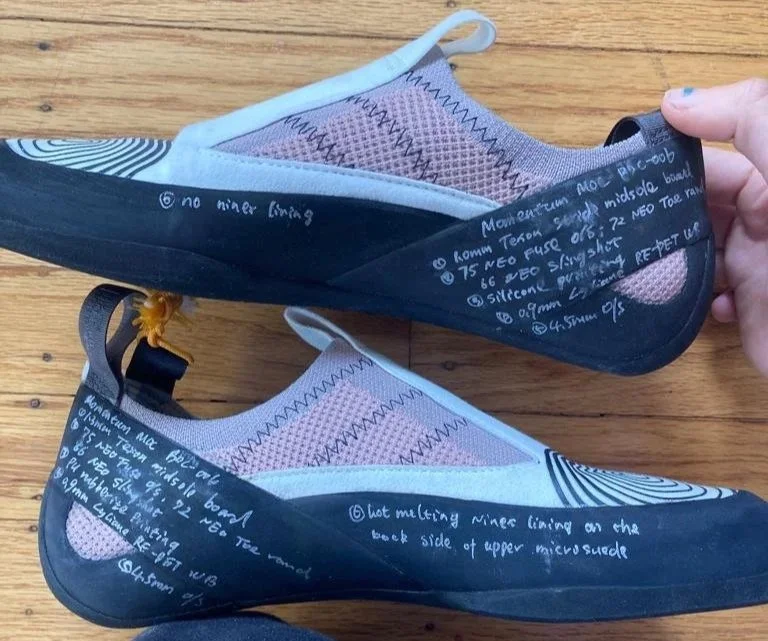 ⑥ no niner lining
Momentum MOC BPC-006
① 1.0mm Texon midsole board
② 75 NEO FUSE O/S; 72 NEO Toe rand
66 NEO Slingshot
③ silicone printing
④ 0.9mm RE-PET WB
⑤ 4.5mm O/S
Momentum MOC BPC-006
Texon midsole board
② 75 NEO FUSE O/S; 72 NEO Toe rand
66 NEO Slingshot
③ Rubberize Printing
④ 0.9mm RE-PET WB
⑤ 4.5mm O/S
⑥ hot melting niner lining on the
back side of upper microsuede